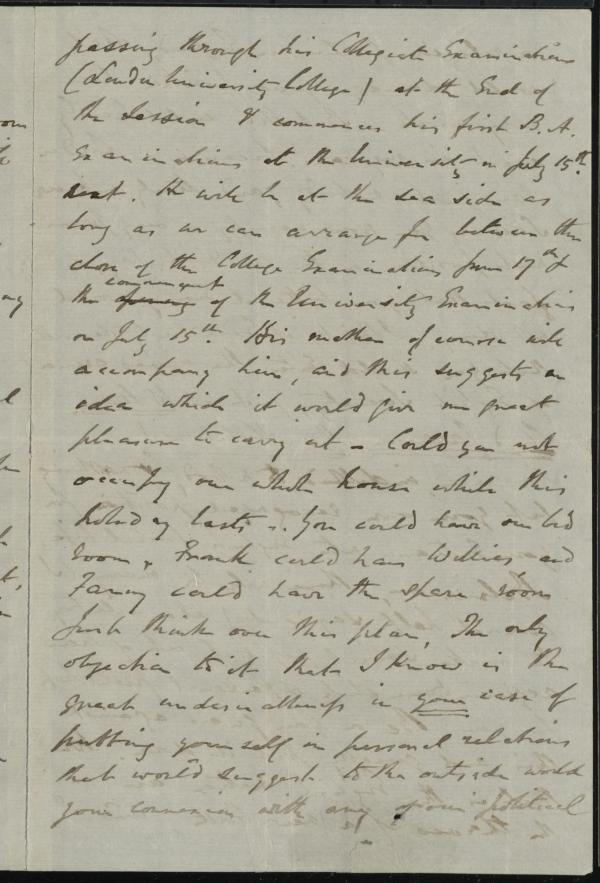 passing through his Collegiate Examinations
(London University College) at the End of
the Session & commences his first B.A.
Examinations at the University in July 15th
next. He will be at the sea side as
long as we can arrange for between the
close of the College Examinations June 17th &
the opening commencement of the University Examinations
on July 15th. His mother of course will
accompany him, and this suggests an
idea which it would give me great
pleasure to carry out - Could you not
occupy our whole house while this
holiday lasts -. You could have our bed
room, Frank could have Willie's and
Fanny could have the spare room
Just think over this plan, The only
objection to it that I know is the
great undesirableness in your case of
putting yourself in personal relations
that would suggest to the outside world
your connexion with any of our political